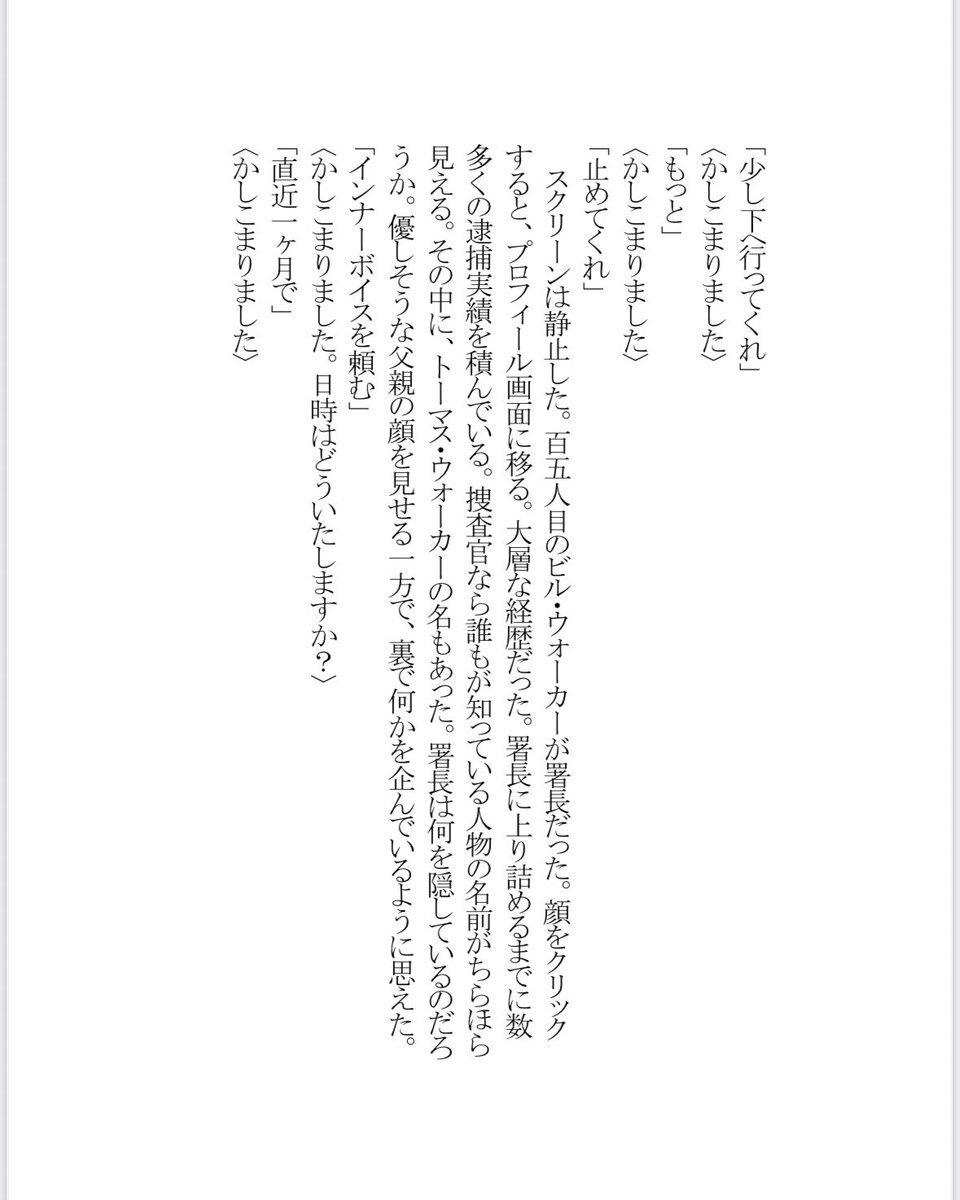 「少し下へ行ってくれ」
〈かしこまりました〉
「もっと」
〈かしこまりました〉
「止めてくれ」
　スクリーンは静止した。百五人目のビル・ウォーカーが署長だった。顔をクリック
すると、プロフィール画面に移る。大層な経歴だった。署長に上り詰めるまでに数
多くの逮捕実績を積んでいる。捜査官なら誰もが知っている人物の名前がちらほら
見える。その中に、トーマス・ウォーカーの名もあった。署長は何を隠しているのだろ
うか。優しそうな父親の顔を見せる一方で、裏で何かを企んでいるように思えた。
「インナーボイスを頼む」
〈かしこまりました。日時はどういたしますか？〉
「直近一ヶ月で」
〈かしこまりました〉